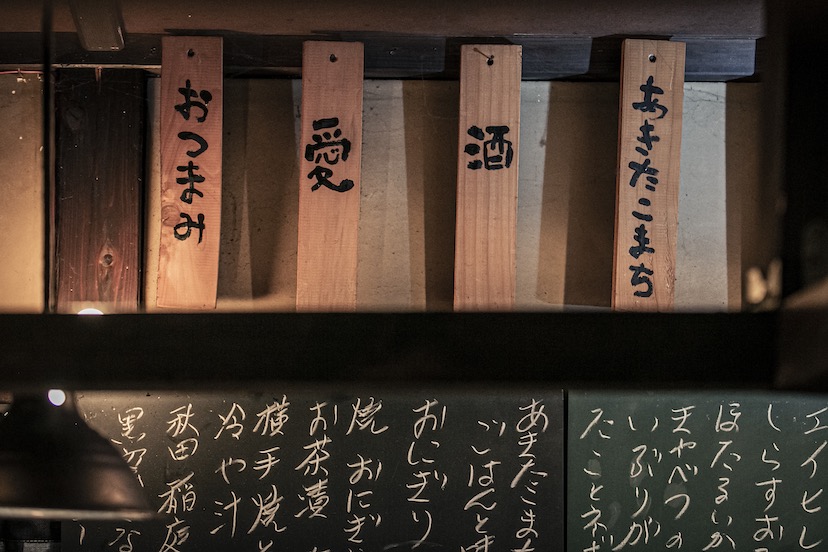 あきたこまち
酒
愛
おつまみ
エイヒレ
しらすお
ほたるいか
きゃべつの
いぶりが
たことネギ
あきたこま
ごはんと
おにぎり
焼おにぎ
お茶漬
横手焼
冷や汁
秋田稲庭